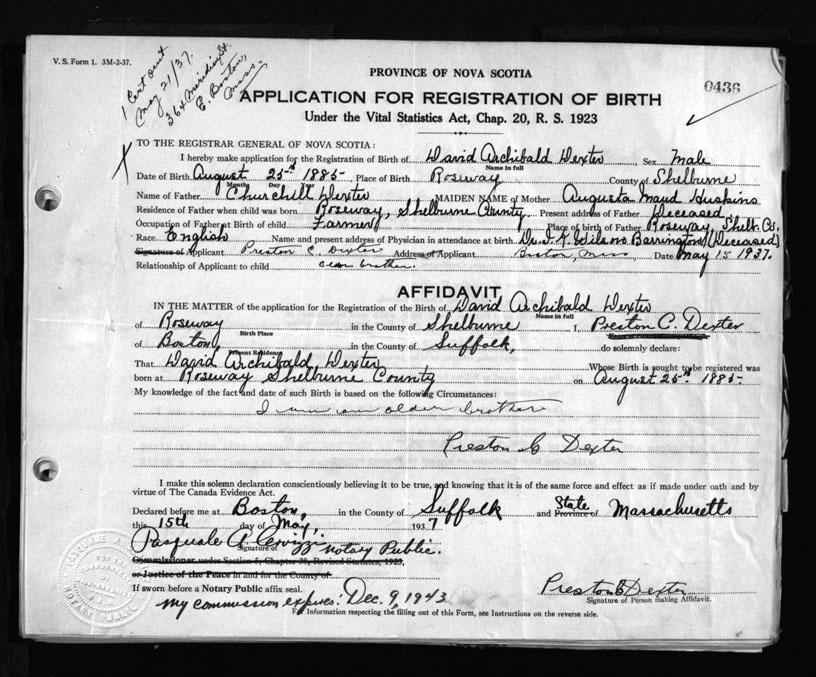 V. S. Form 1. 3M-2-37.
1 Cert out
May 21/37.
364 Meridian St.
E. Boston,
Mass.
PROVINCE OF NOVA SCOTIA
0436
APPLICATION FOR REGISTRATION OF BIRTH
Under the Vital Statistics Act, Chap. 20, R. S. 1923
TO THE REGISTRAR GENERAL OF NOVA SCOTIA:
I hereby make application for the Registration of Birth of David Archibald Dexter Sex Male
Name in full
Date of Birth August 25th 1885, Place of Birth Roseway County of Shelburne
Month Day
Name of Father Churchill Dexter MAIDEN NAME of Mother Augusta Maud Huskins
Residence of Father when child was born Roseway, Shelburne County. Present address of Father Deceased
Occupation of Father at Birth of child Farmer Place of Birth of Father Roseway, Shelb. Co.
Race English Name and present address of Physician in attendance at birth Dr. Wilson Barrington (Deceased)
Signature of Applicant Preston C. Dexter Address of Applicant Boston, Mass Date May 15 1937.
Relationship of Applicant to child brother.
AFFIDAVIT
IN THE MATTER of the application for the Registration of the Birth of David Archibald Dexter
Name in full
of Roseway in the County of Shelburne I, Preston C. Dexter
Birth Place
of Boston, in the County of Suffolk, do solemnly declare:
Present Residence
That David Archibald Dexter Whose Birth is sought to be registered was
born at Roseway Shelburne County on August 25th 1885-
My knowledge of the fact and date of such Birth is based on the following Circumstances:
I am an older brother
Preston C Dexter
I make this solemn declaration conscientiously believing it to be true, and knowing that it is of the same force and effect as if made under oath and by
virtue of The Canada Evidence Act.
Declared before me at Boston, in the County of Suffolk and State Province of Massachusetts
this 15th day of May, 1937
Pasquale A. Notary Public.
Signature of
Commissioner under Section 5, Chapter 38, Revised Statutes, 1923,
or Justice of the Peace in and for the County of
If sworn before a Notary Public affix seal. Preston C Dexter
Signature of Person making Affidavit.
My commission expires: Dec. 9, 1943
For Information respecting the filling out of this Form, see Instructions on the reverse side.
NOTARY PUBLIC